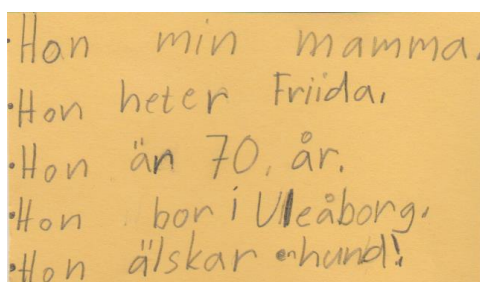 ·Hon min mamma.
·Hon heter Friida.
·Hon än 70. år.
·Hon bor i Uleåborg.
·Hon älskar en hund!